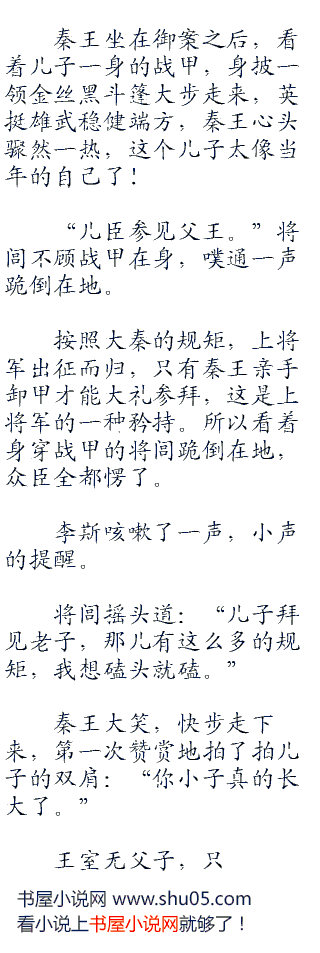 秦王坐在御案之后，看
着儿子一身的战甲，身披一
领金丝黑斗篷大步走来，英
挺雄武稳健端方，秦王心头
骤然一热，这个儿子太像当
年的自己了！
“儿臣参见父王。”将
闾不顾战甲在身，噗通一声
跪倒在地。
按照大秦的规矩，上将
军出征而归，只有秦王亲手
卸甲才能大礼参拜，这是上
将军的一种矜持。所以看着
身穿战甲的将闾跪倒在地，
众臣全都愣了。
李斯咳嗽了一声，小声
的提醒。
将闾摇头道：“儿子拜
见老子，那儿有这么多的规
矩，我想磕头就磕。”
秦王大笑，快步走下
来，第一次赞赏地拍了拍儿
子的双肩：“你小子真的长
大了。”
王室无父子，只
书屋小说网 www.shu05.com
看小说上书屋小说网就够了！